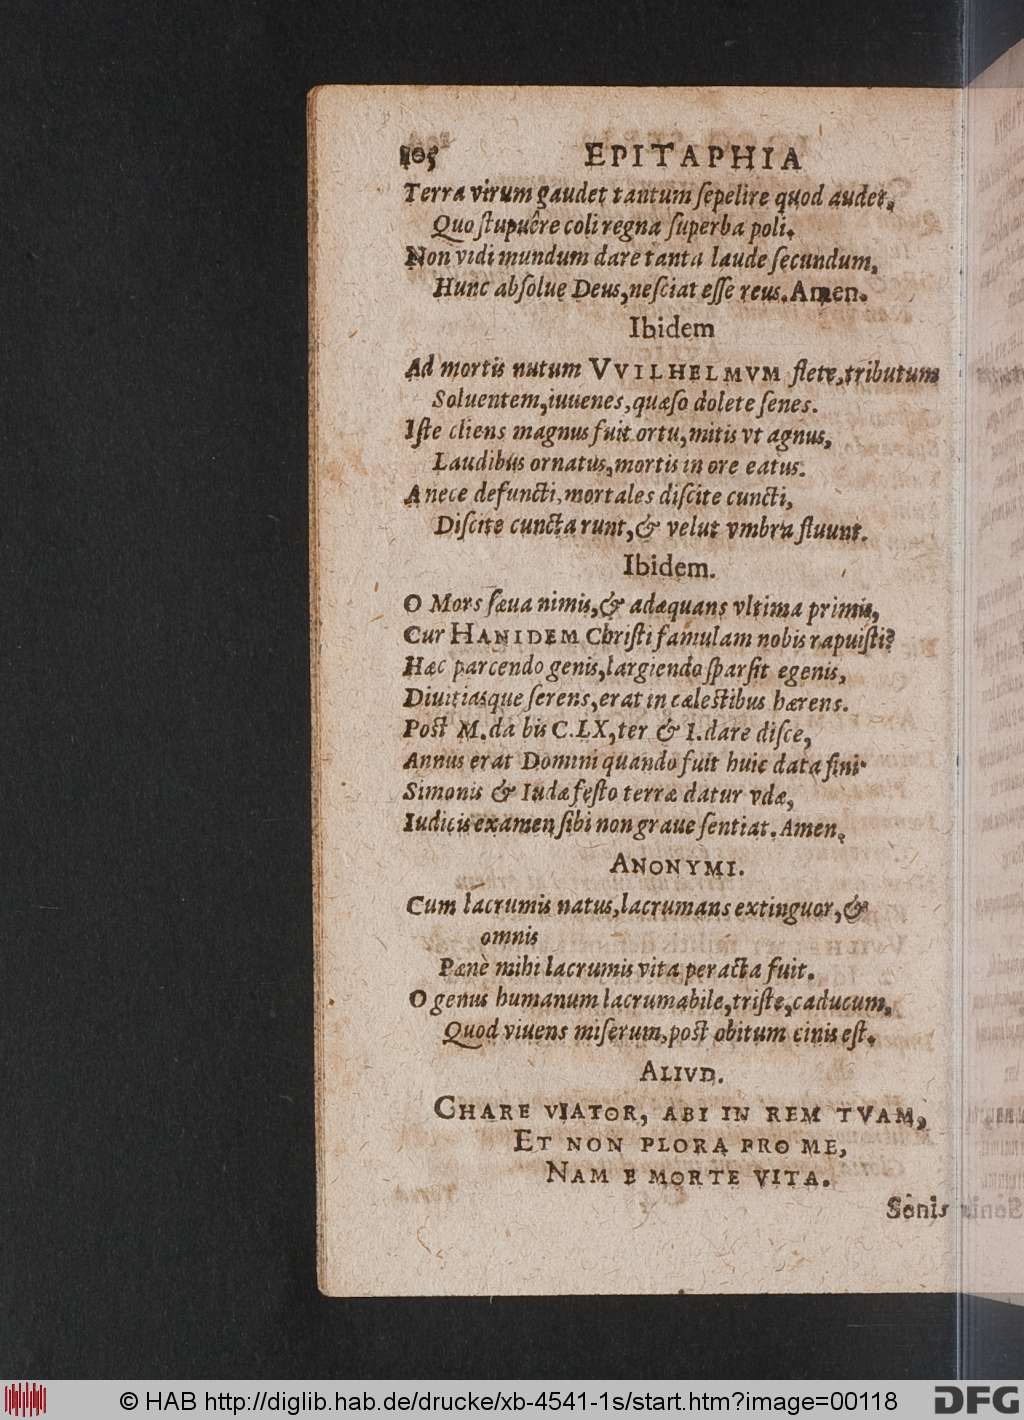 105 EPITAPHIA
Terra virum gaudet tantum ſepelire quod audet,
Quo ſtupuêre coli regna ſuperba poli.
Non vidi mundum dare tanta laude ſecundum,
Hunc abſolue Deus, neſciat eſſe reus. Amen.
Ibidem
Ad mortis nutum VVILHELMVM flete, tributum
Soluentem, iuuenes, quæſo dolete ſenes.
Iſte cliens magnus fuit ortu, mitis vt agnus,
Laudibus ornatus, mortis in ore eatus.
A nece defuncti, mortales diſcite cuncti,
Diſcite cuncta runt, & velut vmbra fluunt.
Ibidem.
O Mors ſæua nimis, & adæquans vltima primis,
Cur HANIDEM Chriſti famulam nobis rapuiſti?
Hæc parcendo genis, largiendo ſparſit egenis,
Diuitiasque ſerens, erat in cæleſtibus hærens.
Poſt M. da bis C. LX, ter & I. dare diſce,
Annus erat Domini quando fuit huic data fini
Simonis & Iudæ feſto terræ datur vdæ,
Iudicis examen ſibi non graue ſentiat. Amen.
ANONYMI.
Cum lacrumis natus, lacrumans extinguor, &
omnis
Pænè mihi lacrumis vita peracta fuit.
O genus humanum lacrumabile, triſte, caducum,
Quod viuens miſerum, poſt obitum cinis eſt.
ALIVD.
CHARE VIATOR, ABI IN REM TVAM,
ET NON PLORA PRO ME,
NAM E MORTE VITA.
Senis
© HAB http://diglib.hab.de/drucke/xb-4541-1s/start.htm?image=00118
DFG